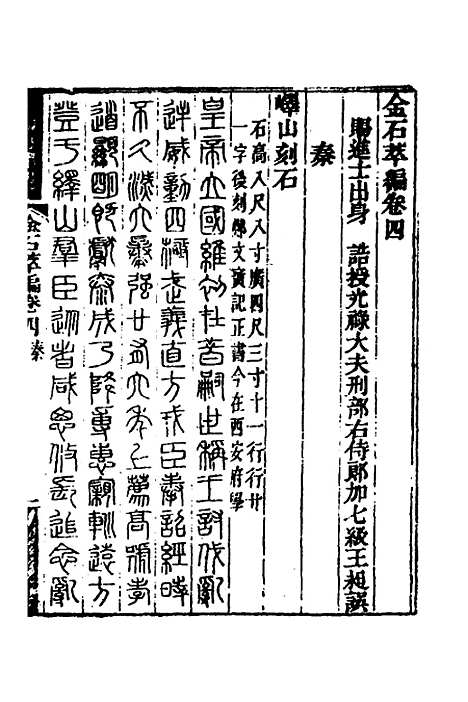 金石萃編卷四
賜進士出身 誥授光祿大夫刑部右侍郎加七級王昶譔
秦
嶧山刻石
石高八尺八寸廣四尺三寸十一行行廿
一字後刻鄭文寶記正書今在西安府學
皇帝立國維初在昔嗣世稱王討伐亂
逆威動四極武義直方戎臣奉詔經時
不久滅六暴強廿有六年上薦高號孝
道顯明既獻泰成乃降尃惠寴䡅遠方
登于繹山羣臣從者咸思攸長追念亂
金石萃編卷四 秦
一